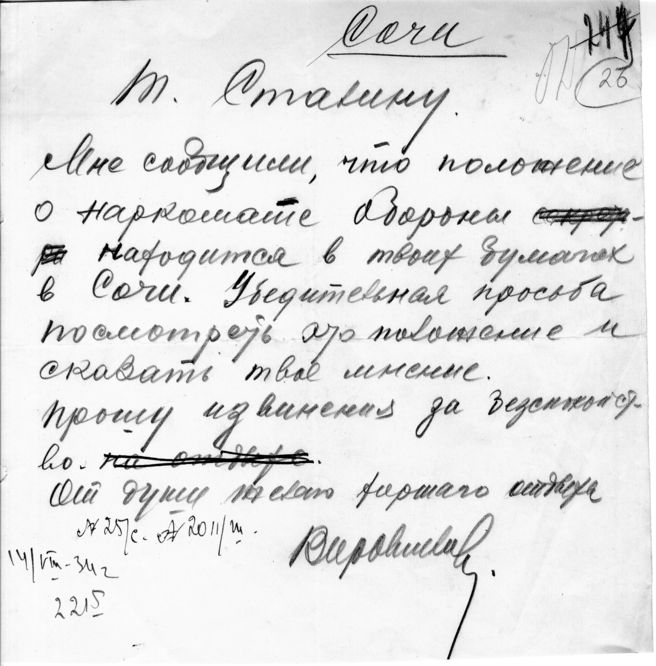 Сочи
244
26
Т. Сталину.
Мне сообщили, что положение
о наркомате Обороны
находится в твоих бумагах
в Сочи. Убедительная просьба
посмотреть это положение и
сказать твое мнение.
Прошу извинения за безспокойст-
во. на отдыхе.
От души желаю хорошего отдыха
№ 25/с. № 2011/ш.
Ворошилов.
14/VIII-34г
2215